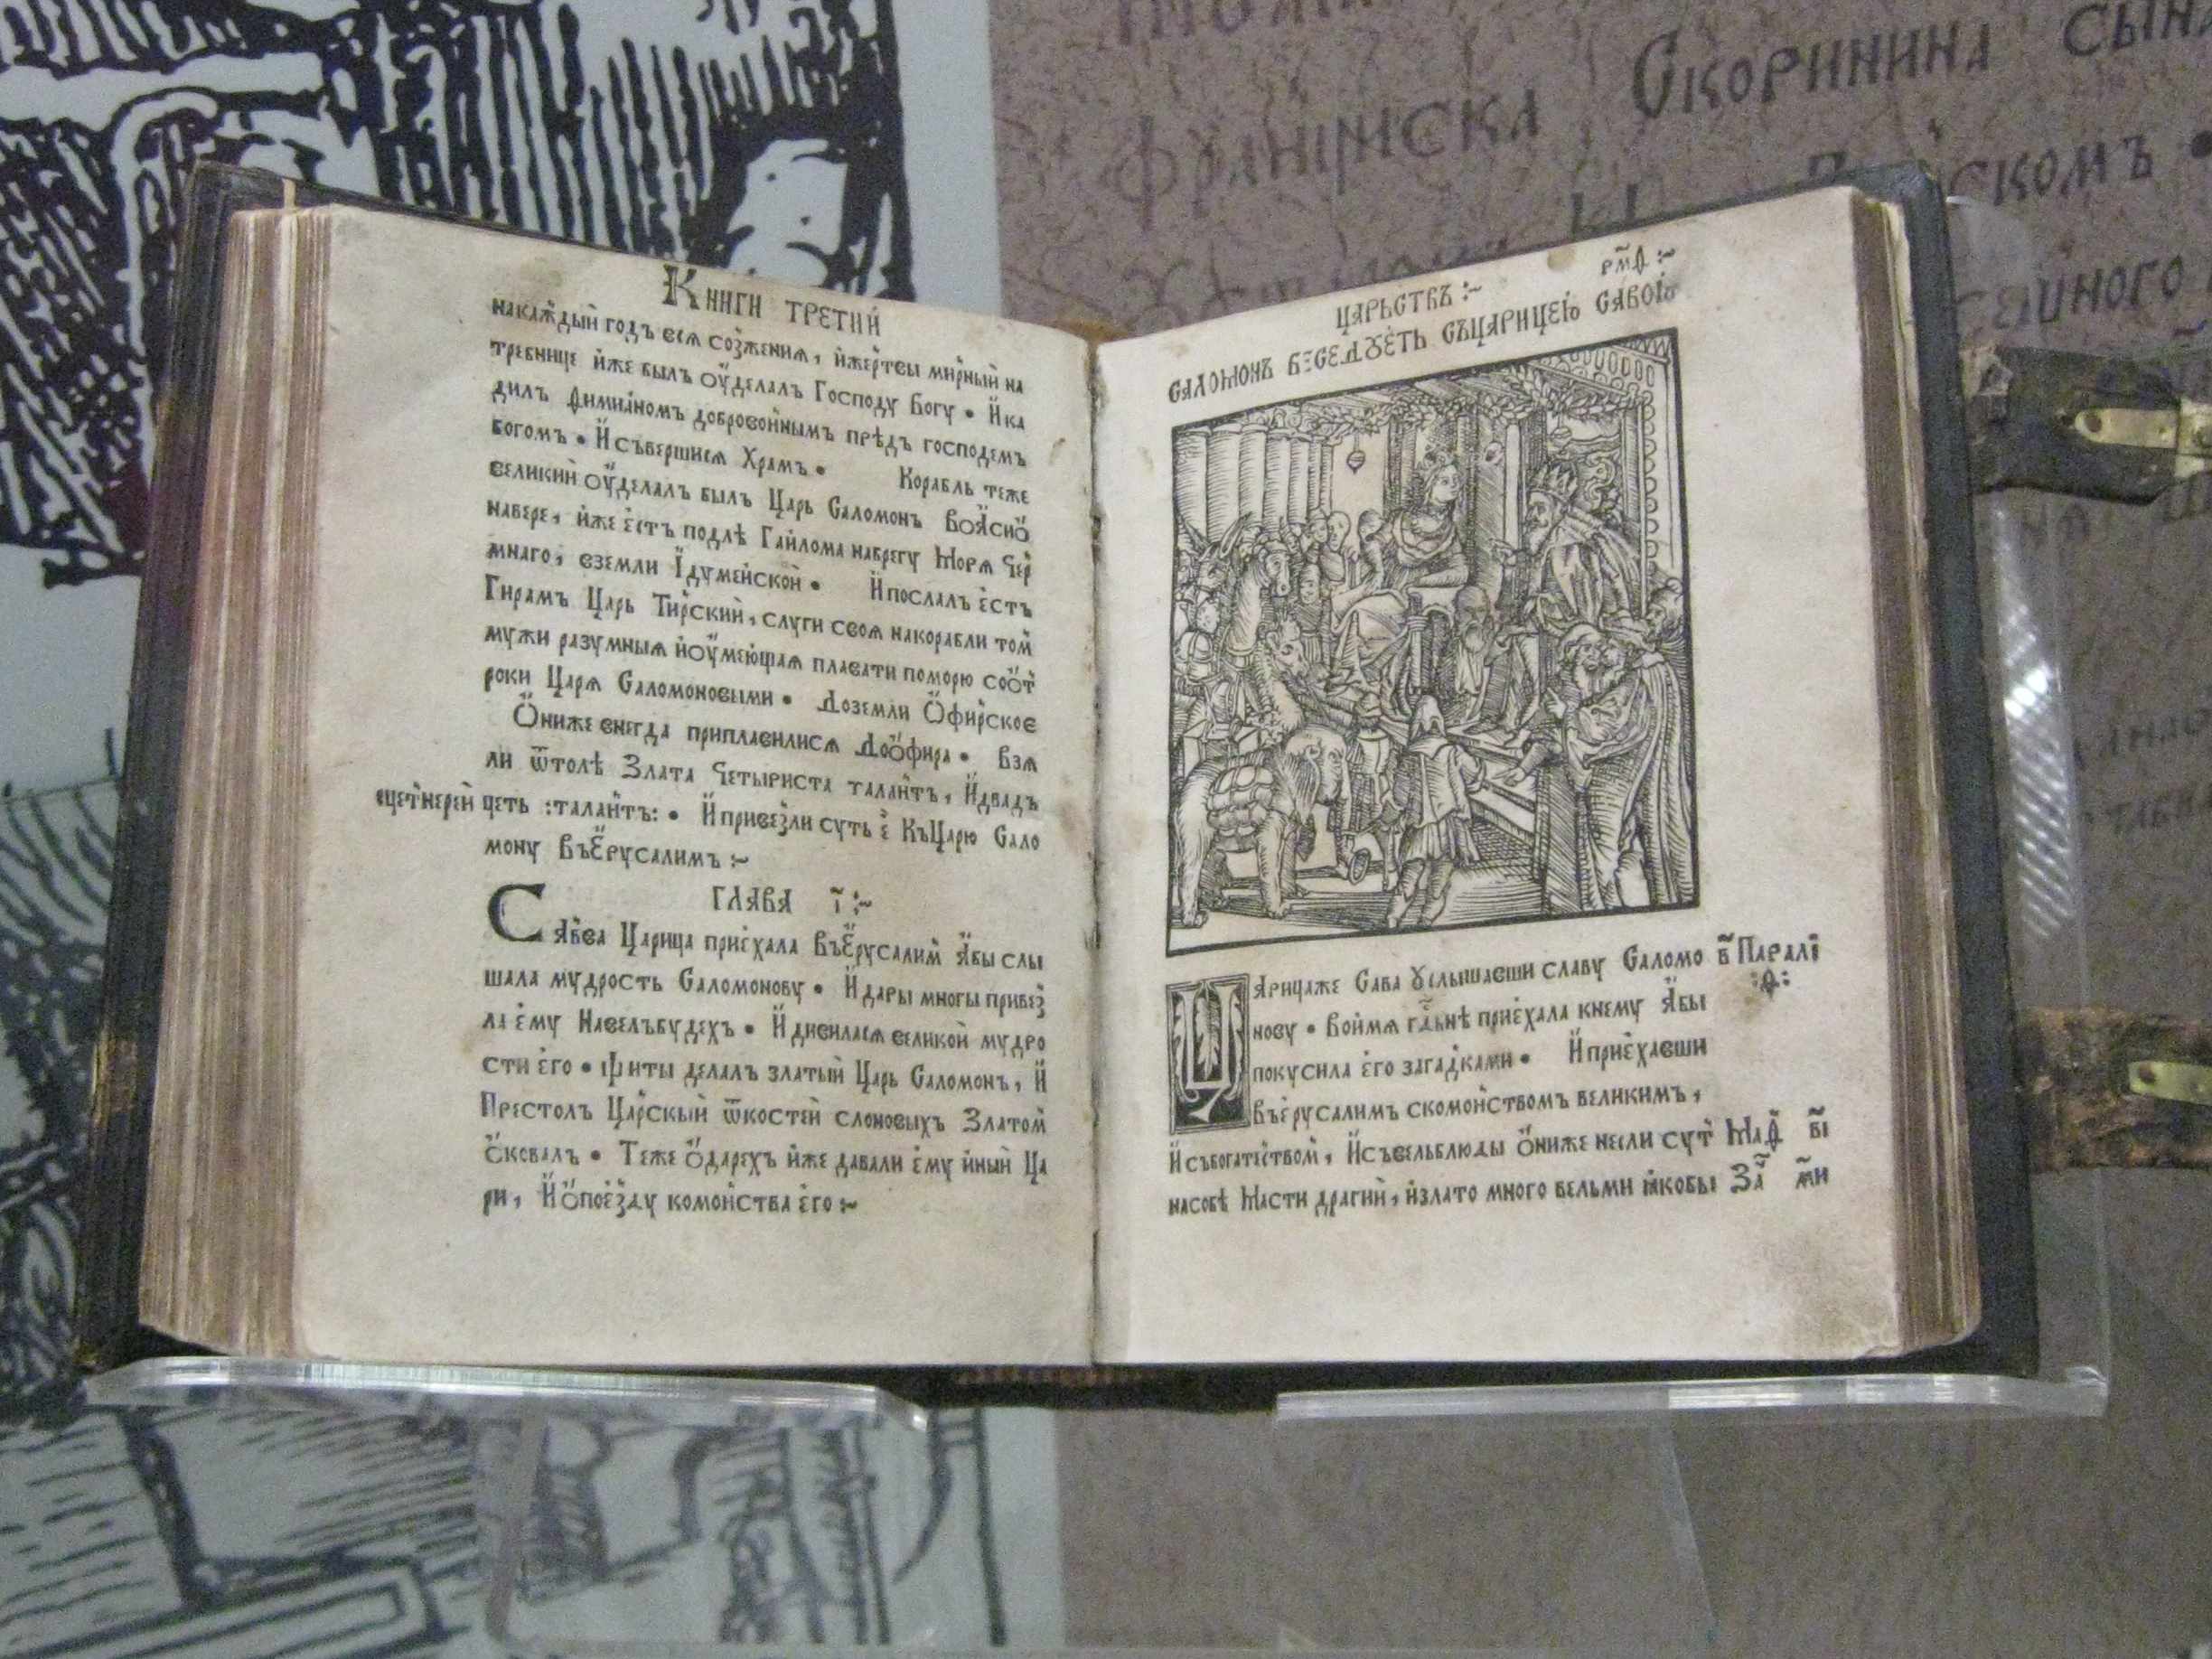 Скоринина сына
Франциска
скомъ
Книги третии
накаждый годъ вся созжения, ижертвы мирный на
требнице иже былъ оуделалъ Господу Богу • Ика
дилъ ѳимианомъ добровоннымъ прѣдъ господемъ
богомъ • Исъвершися Храмъ • Корабль теже
великий оуделалъ былъ Царь Саломонъ
навере, иже естъ подлѣ Гаилома набрегу Моря Чер
мнаго, вземли Ідумейской • Ипослалъ естъ
Гирамъ Царь Тирский, слуги своя накорабли том
мужи разумныя иоумеющая плавати поморю соот
роки Царя Саломоновыми • Доземли Офирское
Ониже внегда приплавилися доофира • Взя
ли ѿтолѣ Злата Четыриста талантъ, Идвадъ
цеть :талантъ: • Ипривезли суть е КъЦарю Сало
мону ВъЕрусалимъ :~
ГЛАВА ї :~
Савва Царица приехала ВъЕрусалим Абы слы
шала мудрость Саломонову • Идары многы привез
ла ему Навельбудехъ • Идивилася великой мудро
сти его • Щиты делалъ златый Царь Саломонъ, И
Престолъ Царскый ѿкостей слоновыхъ Златом
Оковалъ • Теже Одарехъ иже давали ему иный Ца
ри, Иопоезду комонства его :~
царьствъ :~ рм҃ѳ :~
саломонъ бѣседуеть съцарицею савою
Царицаже Сава ꙋслышавши славу Саломо в҃ Паралї
нову • Воимя гд҃ьнѣ приехала кнему Абы :ѳ:
покусила его загадками • Иприехавши
Въерусалимъ скомонством великимъ,
Исъбогатеством, Исъвельблюды Ониже несли сут Маѳ в҃ї
насобѣ Масти драгий, излато много вельми якобы За м҃и